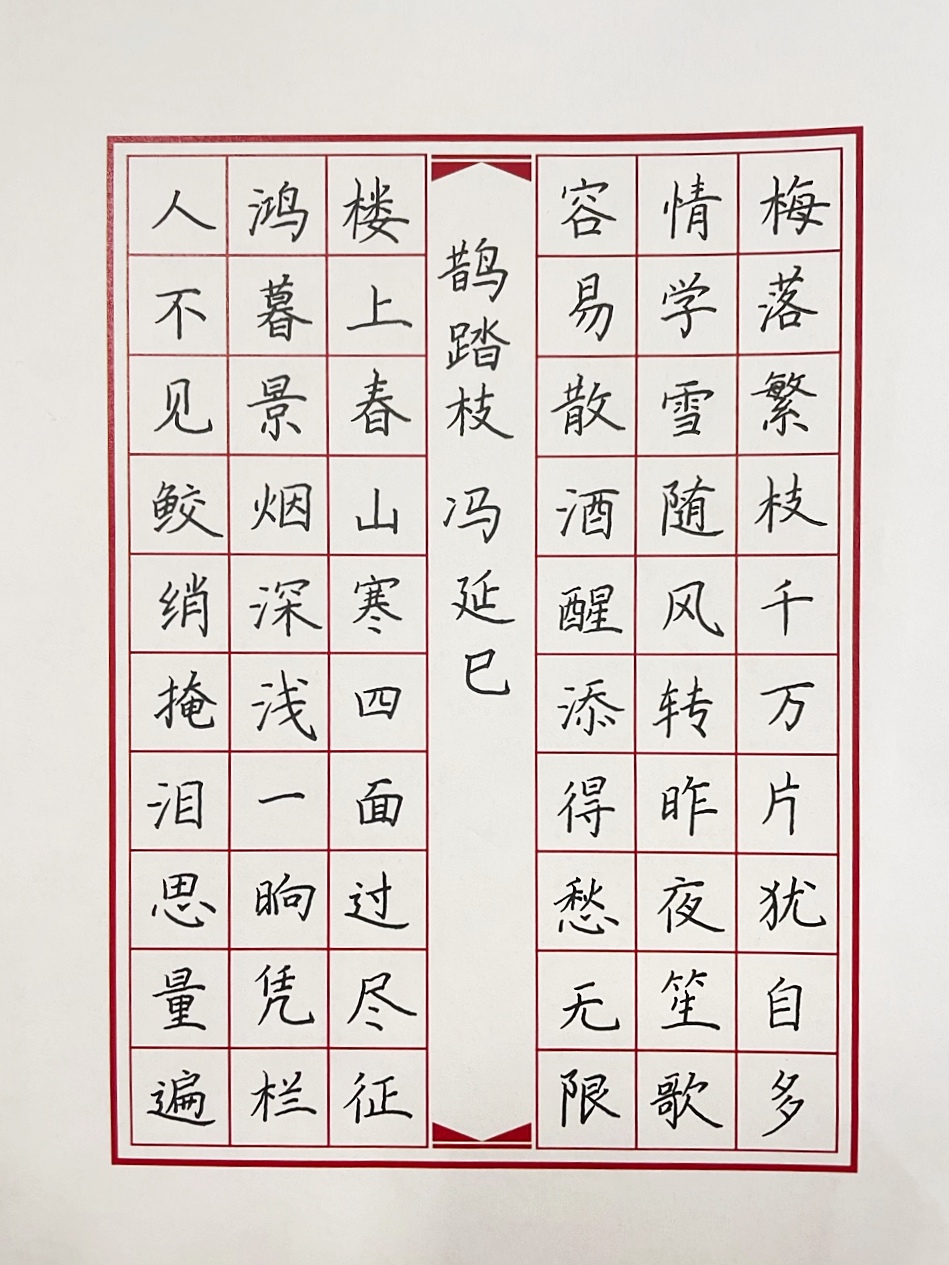 梅落繁枝千万片犹自多
情学雪随风转昨夜笙歌
容易散酒醒添得愁无限
鹊踏枝 冯延巳
楼上春山寒四面过尽征
鸿暮景烟深浅一晌凭栏
人不见鲛绡掩泪思量遍